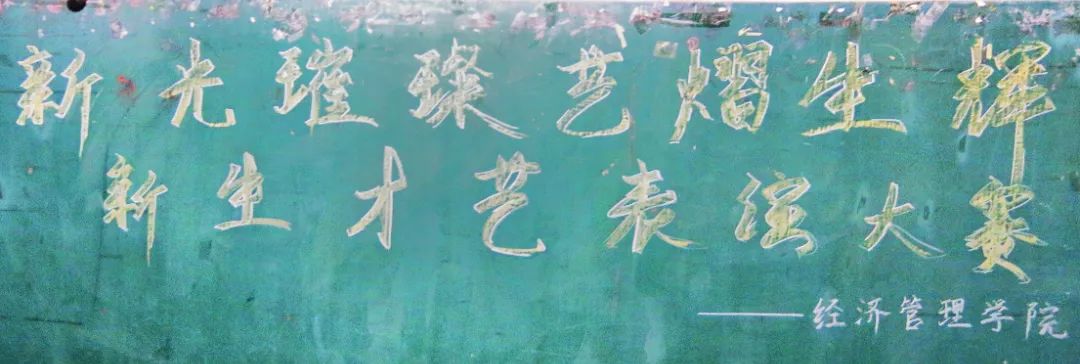 新光璀璨艺熠生辉
新生才艺表演大赛
——经济管理学院